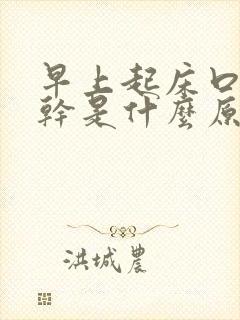 早上起床口
幹是什麼原
洪城農